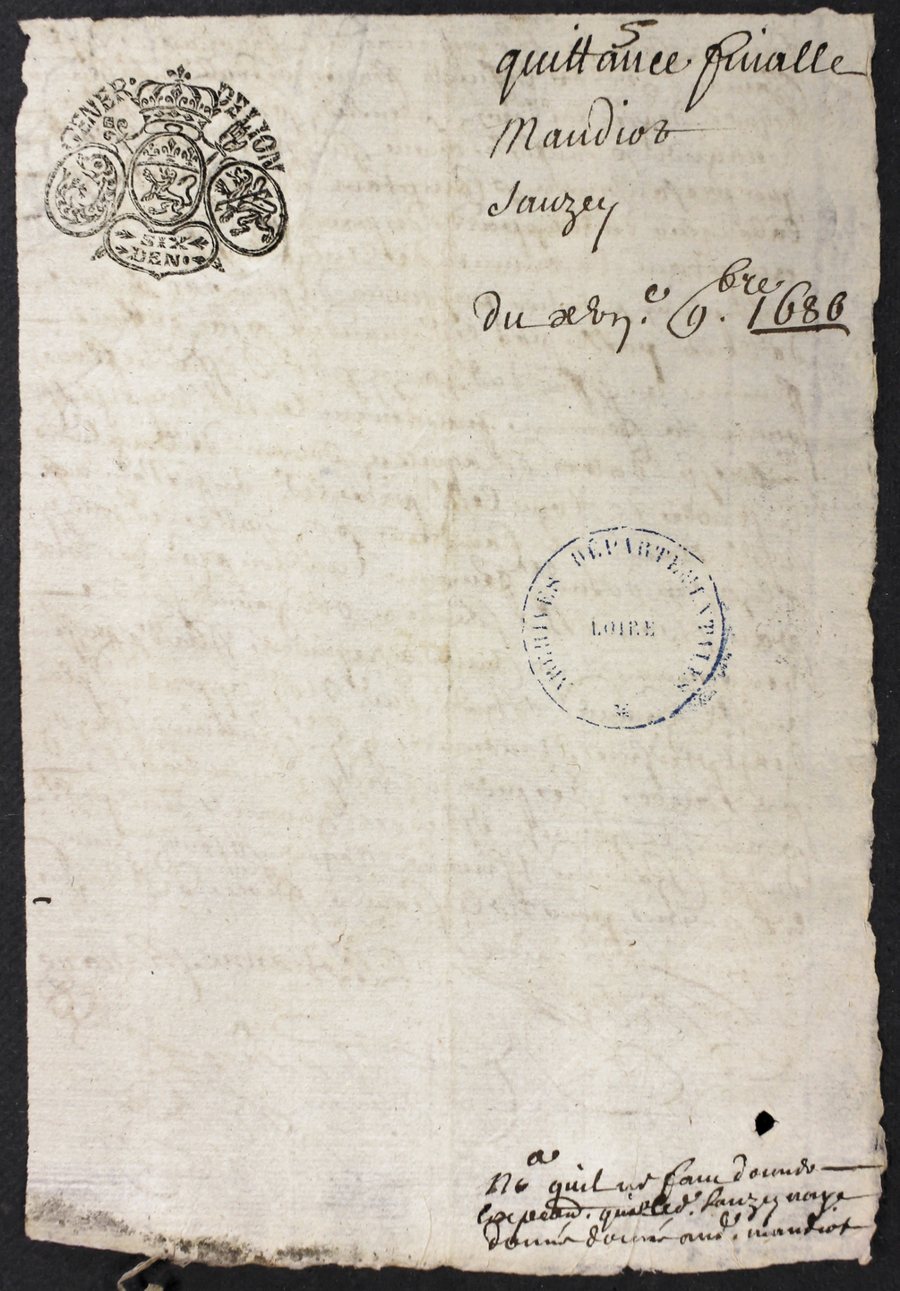 GENER. DE LION
SIX
DEN.
quittance finalle
Maudiot
Sauzey
du xbij.e 9.bre 1686
ARCHIVES DÉPARTEMENTALES
LOIRE
Na quil ne faut donner
que led. Sauzey naye
donné donné aud. maudiot